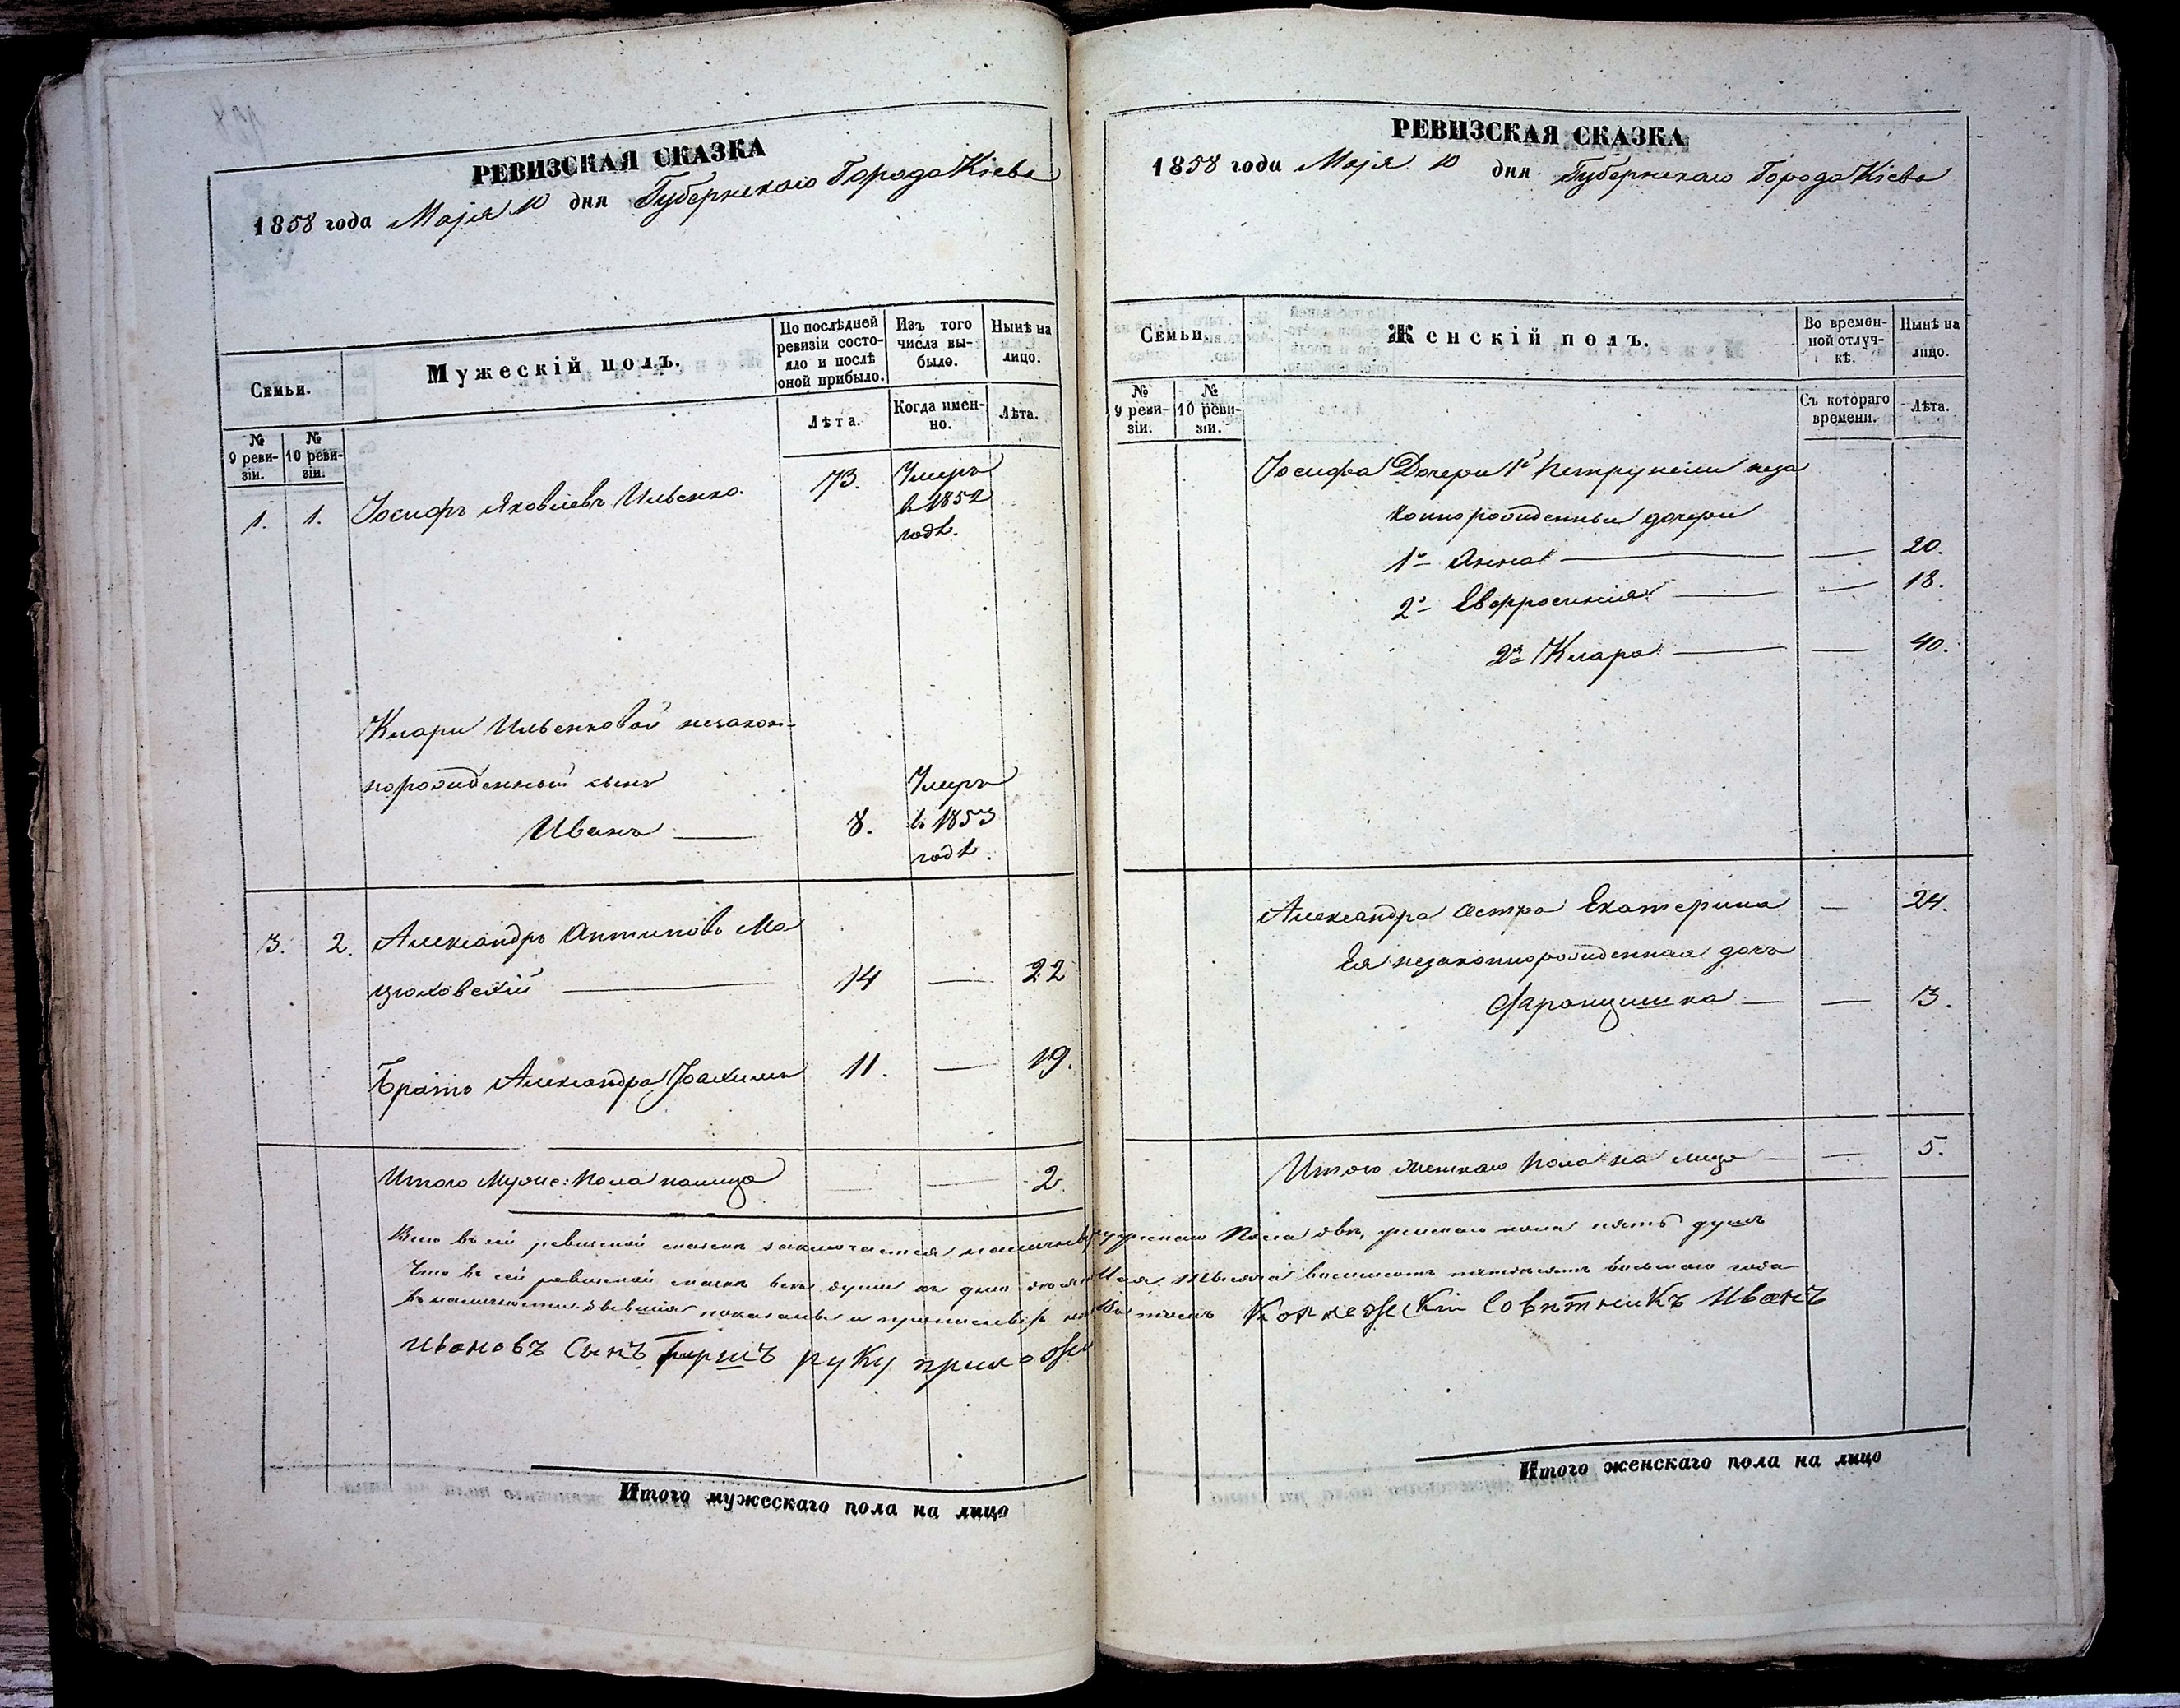 РЕВИЗСКАЯ СКАЗКА
1858 года Маія 10 дня Губернскаго Города Кіева
Семьи.
Мужескій полъ.
По послѣдней ревизіи состояло и послѣ оной прибыло.
Изъ того числа выбыло.
Нынѣ на лицо.
№ 9 ревизіи.
№ 10 ревизіи.
Лѣта.
Когда именно.
Лѣта.
1. 1. Іосифъ Яковлевъ Ильенко. 73. Умеръ
в 1852
годѣ.
Клары Ильенковой незакон-
норожденный сынъ
Иванъ 8. Умеръ
в 1853
годѣ.
3. 2. Александръ Антиповъ Ма
цюковскій 14 — 22
Братъ Александра Іоакимъ 11. — 19.
Итого Муже: Пола налицо — — 2.
РЕВИЗСКАЯ СКАЗКА
1858 года Маія 10 дня Губернскаго Города Кіева
Семьи.
Женскій полъ.
Во временной отлучкѣ.
Нынѣ на лицо.
№ 9 ревизіи.
№ 10 ревизіи.
Съ котораго времени.
Лѣта.
Іосифа Дочери 1й Петрунели неза
коннорожденныи дочери
1я Анна — — 20.
2я Евфросинія — — 18.
2я Клара — — 40.
Александра сестра Екатерина — 24.
Ея незаконнорожденная дочь
Францишка — — 3.
Итого женскаго пола на лицо — — 5.
Всего въ сей ревизской сказкѣ заключается наличныхъ мужескаго пола два, женскаго пола пять душъ
Что въ сей ревизской сказкѣ всѣ души ко дню тысяча восемьсотъ пятьдесятъ восьмаго года
въ наличности показаны и Коллежскій Совѣтникъ Иванъ
Ивановъ Сынъ руку приложи
Итого мужескаго пола на лицо
Итого женскаго пола на лицо